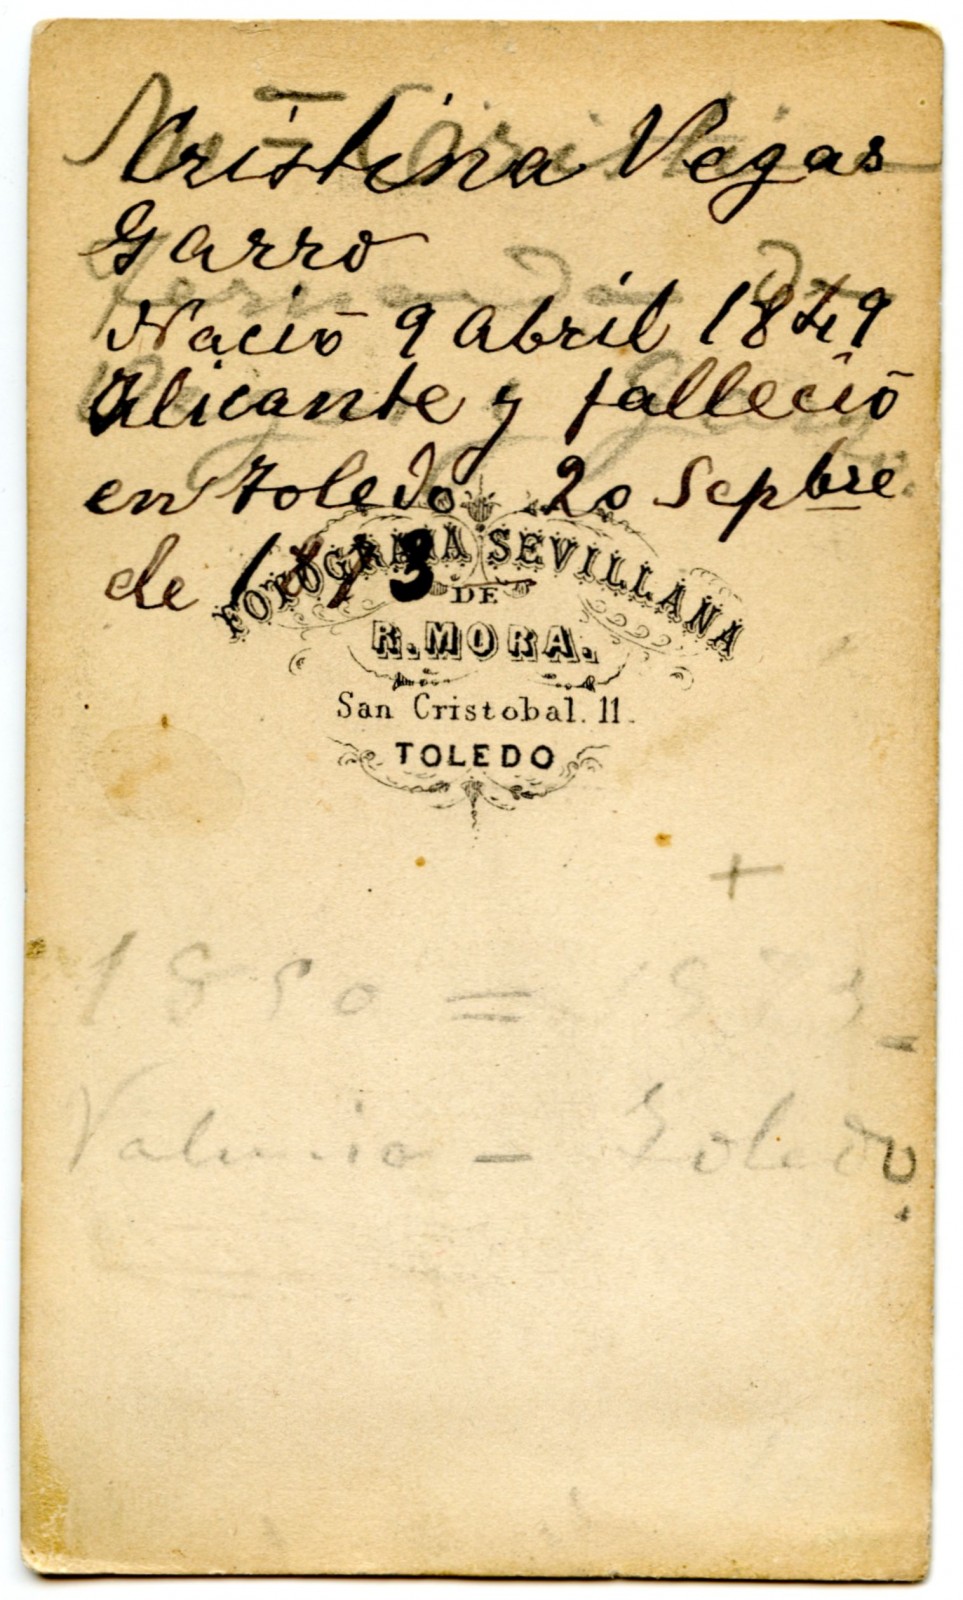 Cristina Vegas
Garro
Nació 9 Abril 1849
Alicante y falleció
en Toledo 20 Sepbre
de 1873
FOTOGRAFIA SEVILLANA
DE
R. MORA.
San Cristobal. 11.
TOLEDO
+
1850 = 1873
Valencia - Toledo.